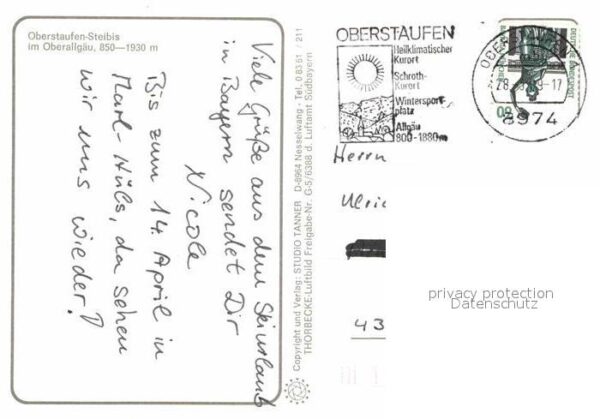 Oberstaufen-Steibis
im Oberallgäu, 850—1930 m
Viele Grüße aus dem Skiurlaub
in Bayern sendet Dir
Nicole
Bis zum 14. April in
Marl-Hüls, da sehen
wir uns wieder!
Copyright und Verlag: STUDIO TANNER D-8964 Nesselwang - Tel. 0 83 61 / 211
THORBECKE-Luftbild Freigabe-Nr. G-5/6388 d. Luftamt Südbayern
OBERSTAUFEN
Heilklimatischer
Kurort
Schroth-
Kurort
Wintersport-
platz
Allgäu
800-1880m
8974
60
Herrn
Ulric
43
privacy protection
Datenschutz